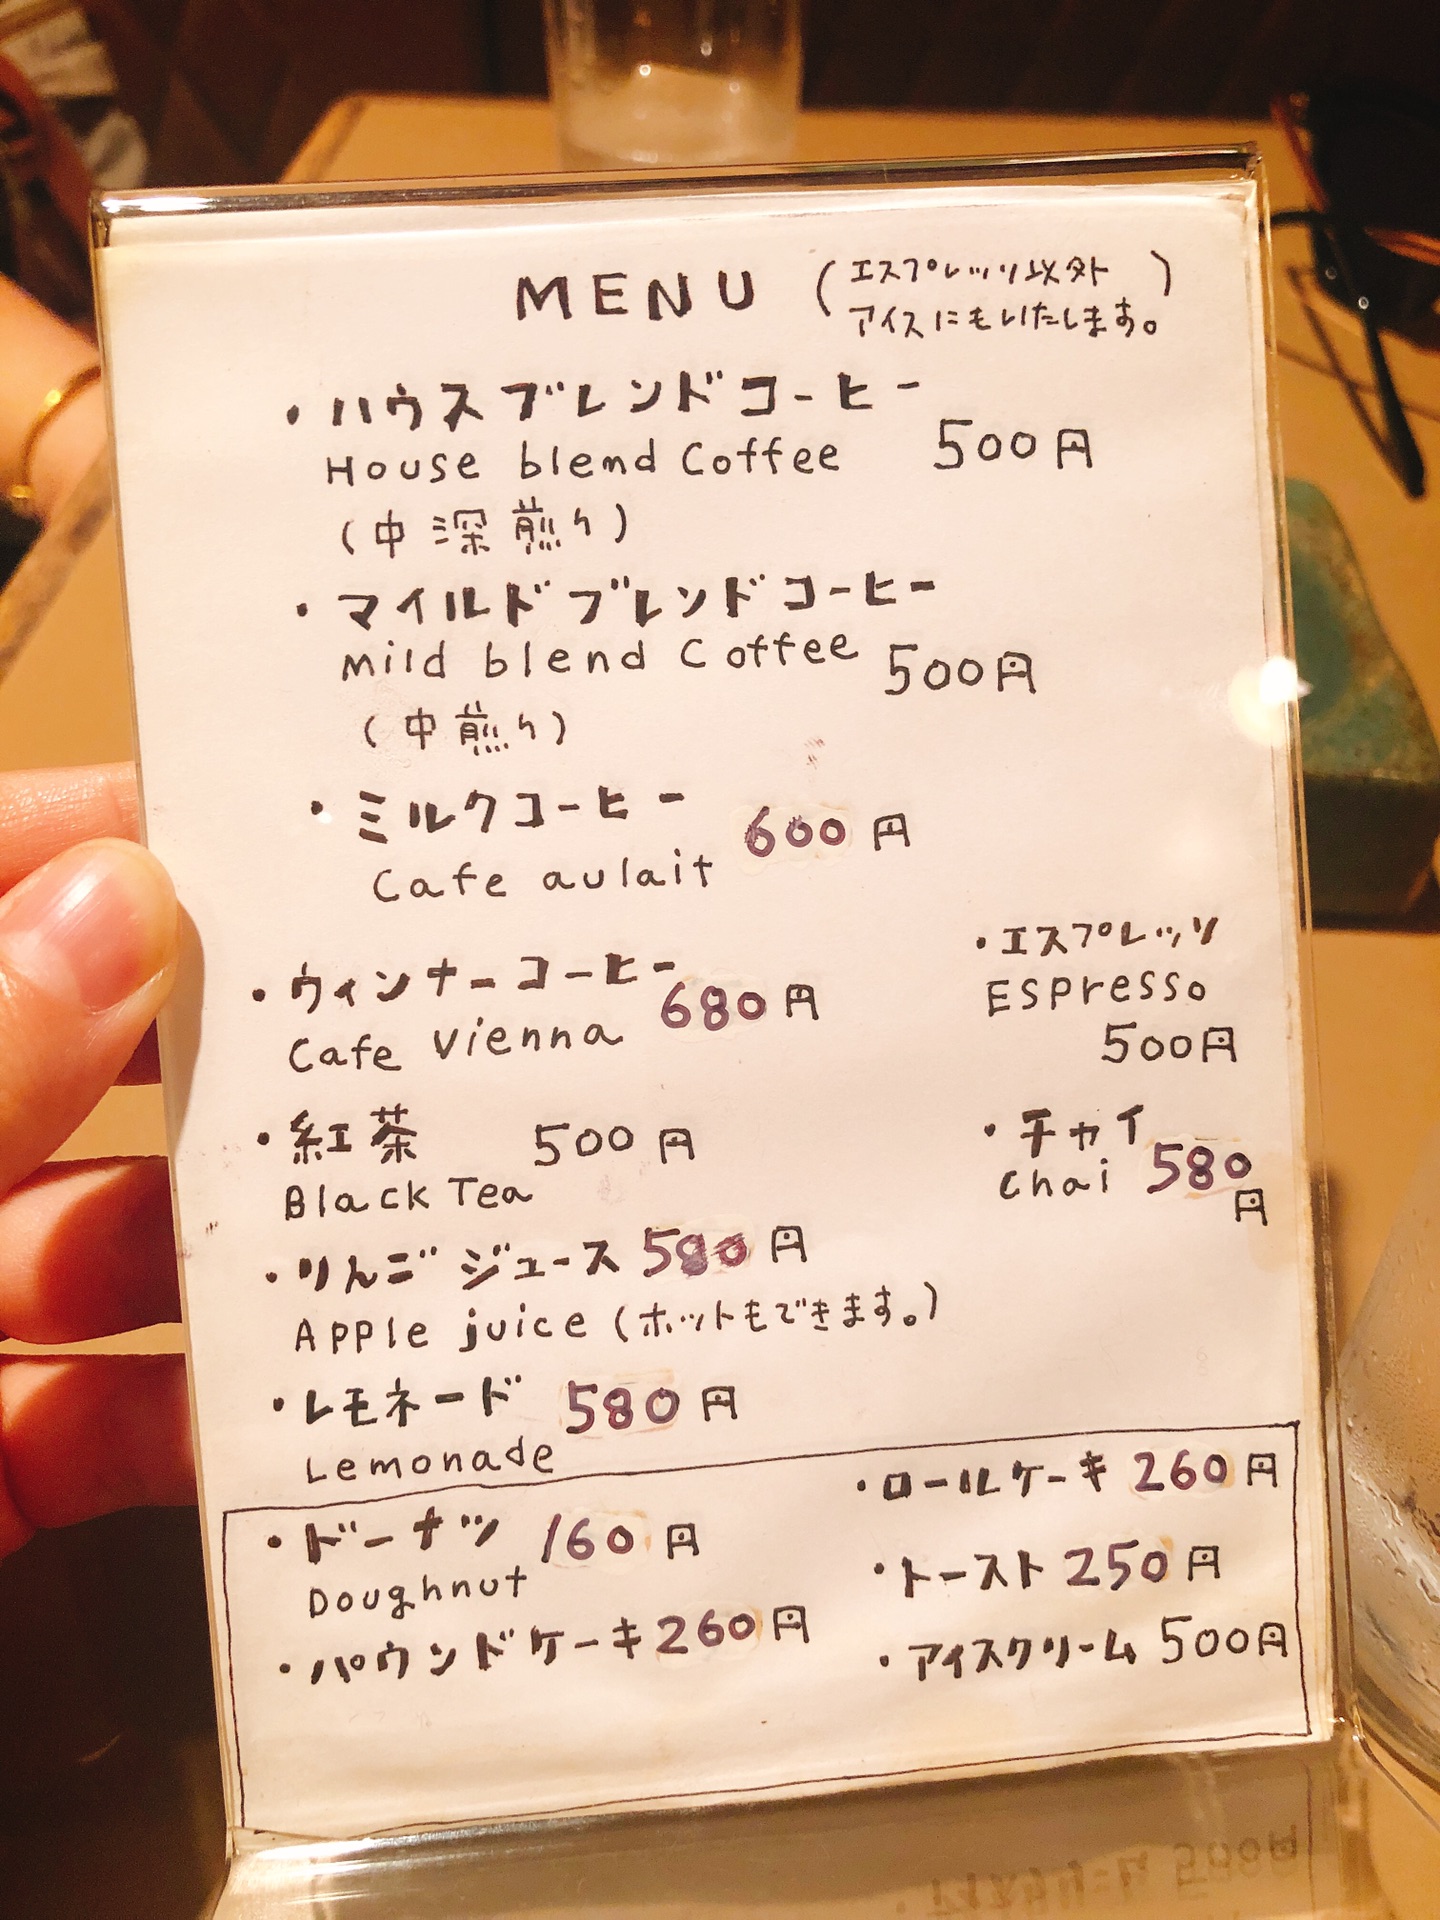 MENU (エスプレッソ以外
アイスにもいたします。)
・ハウスブレンドコーヒー
House blend Coffee 500円
(中深煎り)
・マイルドブレンドコーヒー
Mild blend Coffee 500円
(中煎り)
・ミルクコーヒー 600円
Cafe aulait
・ウィンナーコーヒー 680円
Cafe Vienna
・エスプレッソ
ESPresso
500円
・紅茶 500円
Black Tea
・チャイ
Chai 580円
・りんごジュース 580円
Apple juice (ホットもできます。)
・レモネード 580円
Lemonade
・ドーナツ 160円
Doughnut
・パウンドケーキ 260円
・ロールケーキ 260円
・トースト 250円
・アイスクリーム 500円